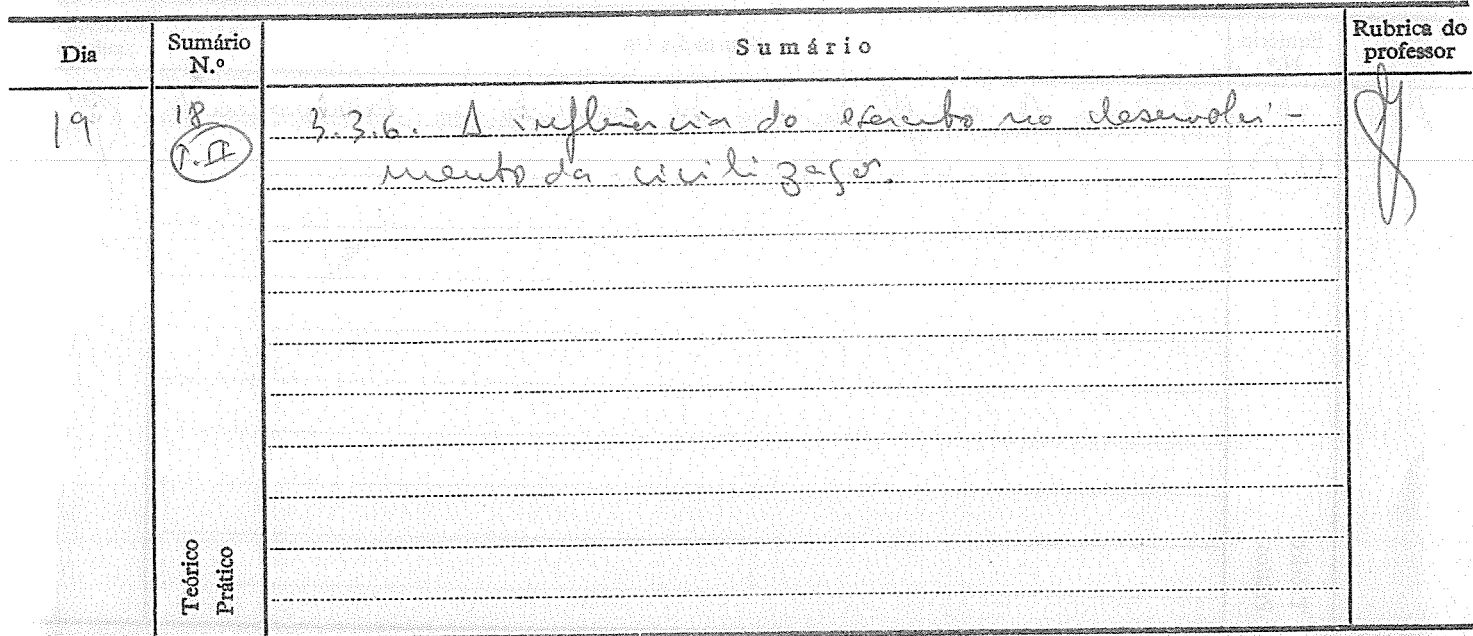 Dia
Sumário N.º
Sumário
Rubrica do professor
19
18
T. II
3.3.6. A influência do no desenvolvi-
mento da civilização.
Teórico
Prático